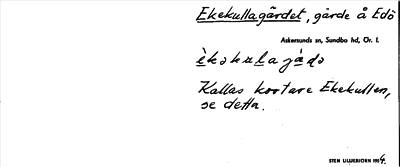 Ekekullagärdet, gärde å Edö
Askersunds sn, Sundbo hd, Ör. l.
Kallas kortare Ekekullen,
se detta.
STEN LILLIEBJÖRN 1954.